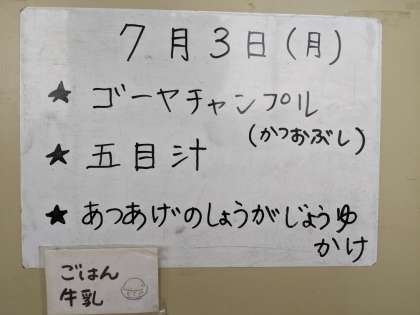 7月3日(月)
★ ゴーヤチャンプル
(かつおぶし)
★ 五目汁
★ あつあげのしょうがじょうゆ
かけ
ごはん
牛乳